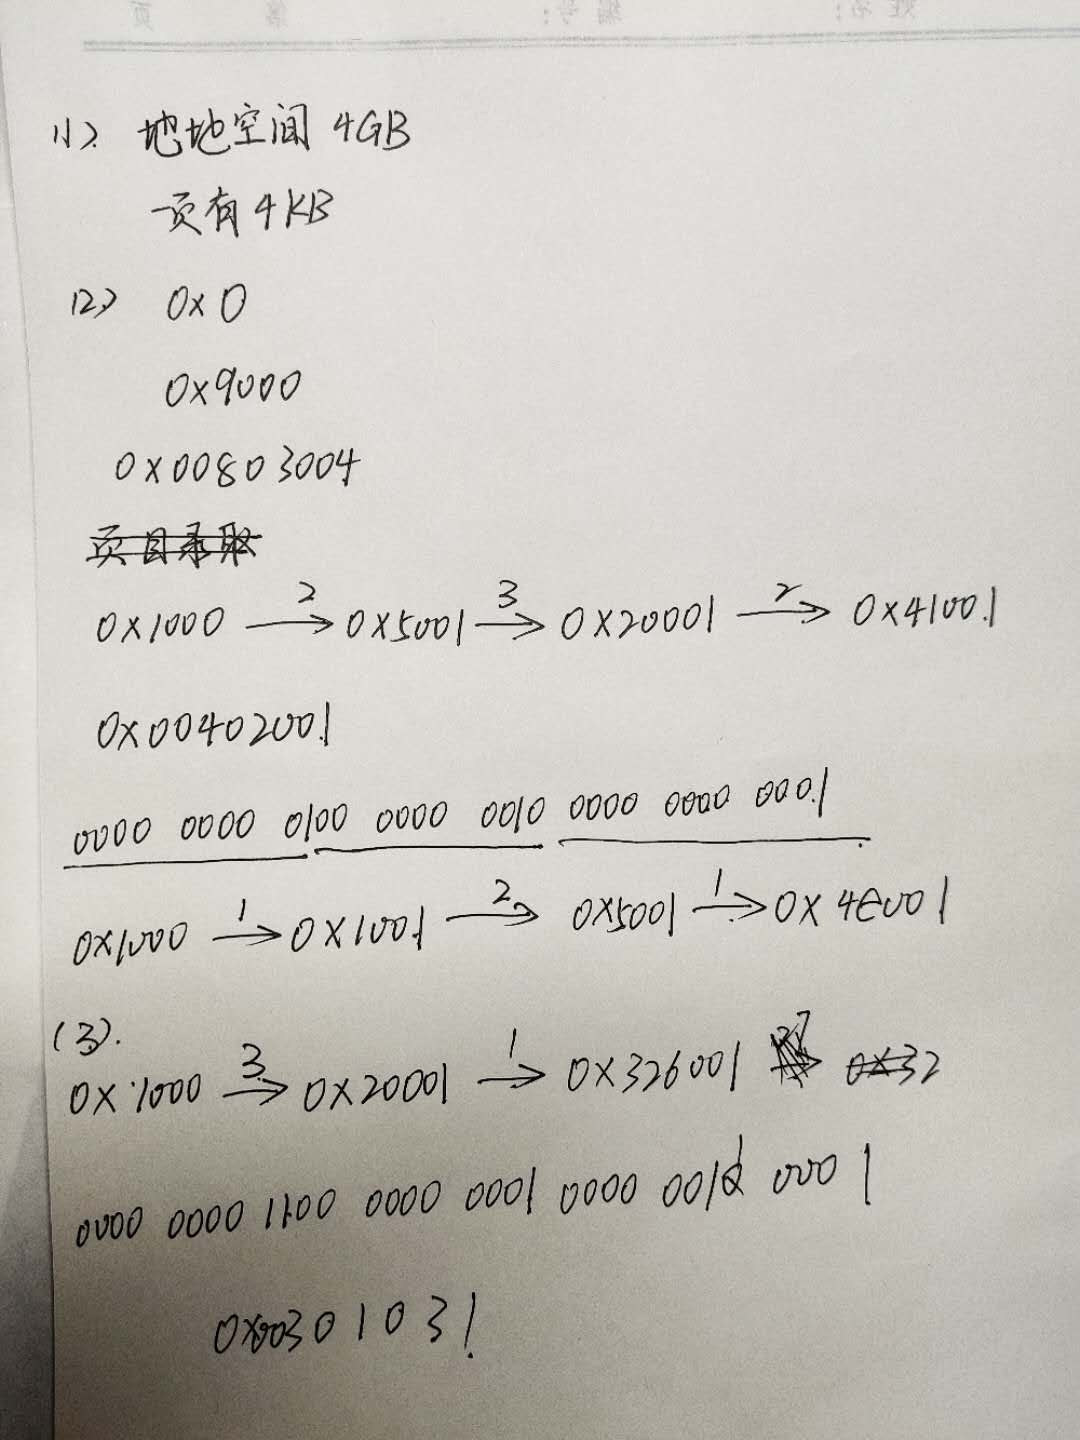 (1). 地地空间 4GB
一页有 4KB
(2) 0x0
0x9000
0x00803004
页目录取
0x1000 2→ 0x5001 3→ 0x20001 2→ 0x41001
0x00402001
0000 0000 0100 0000 0010 0000 0000 0001
0x1000 1→ 0x1001 2→ 0x5001 1→ 0x4e001
(3).
0x1000 3→ 0x20001 1→ 0x326001 0x32
0000 0000 1100 0000 0001 0000 001 0001
0x00301031